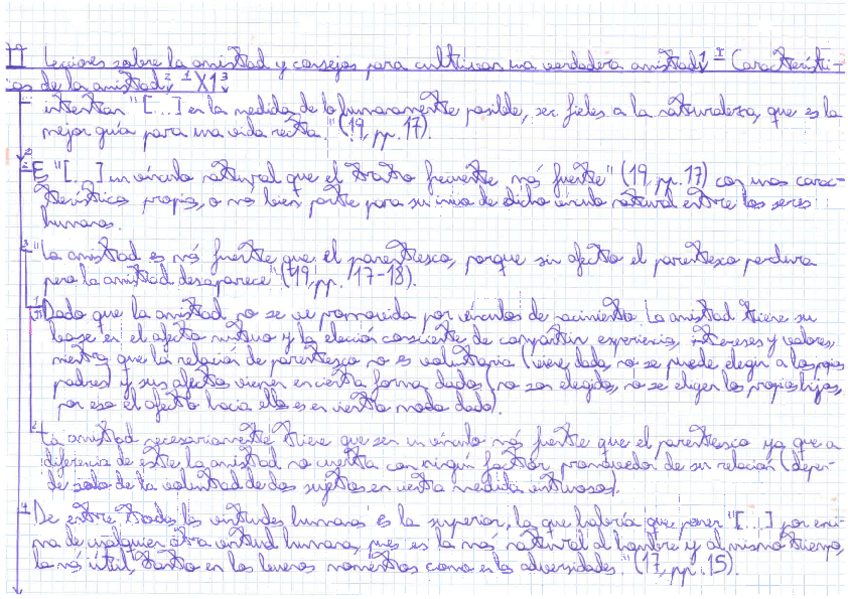 II Lecciones sobre la amistad y consejos para cultivar una verdadera amistad 1 I Característi-
cas de la amistad 2 1 X1 3
1 intentar "[...] en la medida de lo humanamente posible, ser fieles a la naturaleza, que es la
mejor guía para una vida recta." (19, pp. 17).
2 Es "[...] un vínculo natural que el trato frecuente más fuerte" (19, pp. 17) con unas carac-
terísticas propias, o mas bien parte para su inicio de dicho vínculo natural entre los seres
humanos.
3 "La amistad es más fuerte que el parentesco, porque sin afecto el parentesco perdura
pero la amistad desaparece" (19, pp. 17-18).
1 Dado que la amistad no se ve promovida por vínculos de nacimiento la amistad tiene su
base en el afecto mutuo y la elección consciente de compartir experiencia, intereses y valores
mientras que la relación de parentesco no es voluntaria (viene dada, no se puede elegir a los propios
padres) y sus afectos vienen en cierta forma dados (no son elegidos, no se eligen los propios hijos,
por eso el afecto hacia ellos es en cierto modo dado).
2 La amistad necesariamente tiene que ser un vínculo más fuerte que el parentesco ya que a
diferencia de este, la amistad no cuenta con ningún factor promovedor de su relación (depen-
de solo de la voluntad de dos sujetos en cierta medida virtuosos).
4 De entre todas las virtudes humanas es la superior, la que habría que poner "[...] por enci-
ma de cualquier otra virtud humana, pues es la más natural al hombre y al mismo tiempo,
la más útil, tanto en los buenos momentos como en las adversidades." (17, pp. 15).